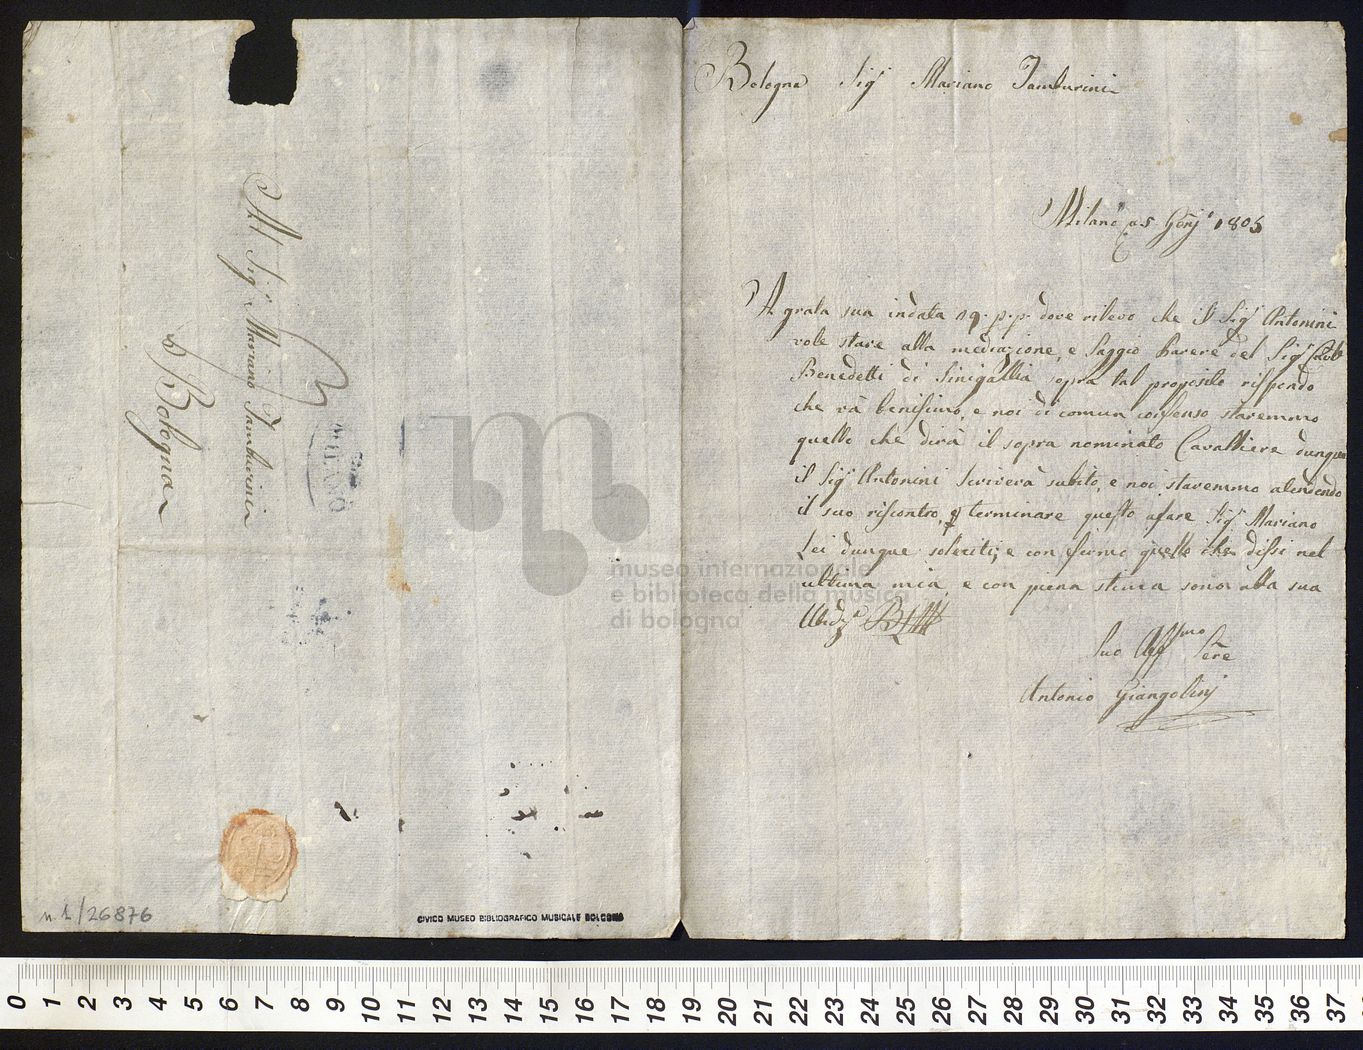 Al Sig.r Mariano Tamburini
Bologna
MILANO
n. 1/26876
CIVICO MUSEO BIBLIOGRAFICO MUSICALE BOLOGNA
Bologna Sig.r Mariano Tamburini
Milano a 5 1805
A grata sua indata 19. p. p. dove rilevo che il Sig.r Antonini
vole stare alla mediazione, e saggio parere del Sig.r
Benedetti di Sinigallia sopra tal proposito rispondo
che và benissimo, e noi di comun consenso staremmo
quello che dirà il sopra nominato Cavalliere dunque
il Sig.r Antonini scriverà subito, e noi staremmo atendendo
il suo riscontro, p terminare questo afare Sig.r Mariano
Lei dunque soleciti, e con fermo quello che dissi nel
ultima mia e con piena stima sono alla sua
Suo Aff.mo Se.re
Antonio Giangolini
museo internazionale
e biblioteca della musica
di bologna
0 1 2 3 4 5 6 7 8 9 10 11 12 13 14 15 16 17 18 19 20 21 22 23 24 25 26 27 28 29 30 31 32 33 34 35 36 37